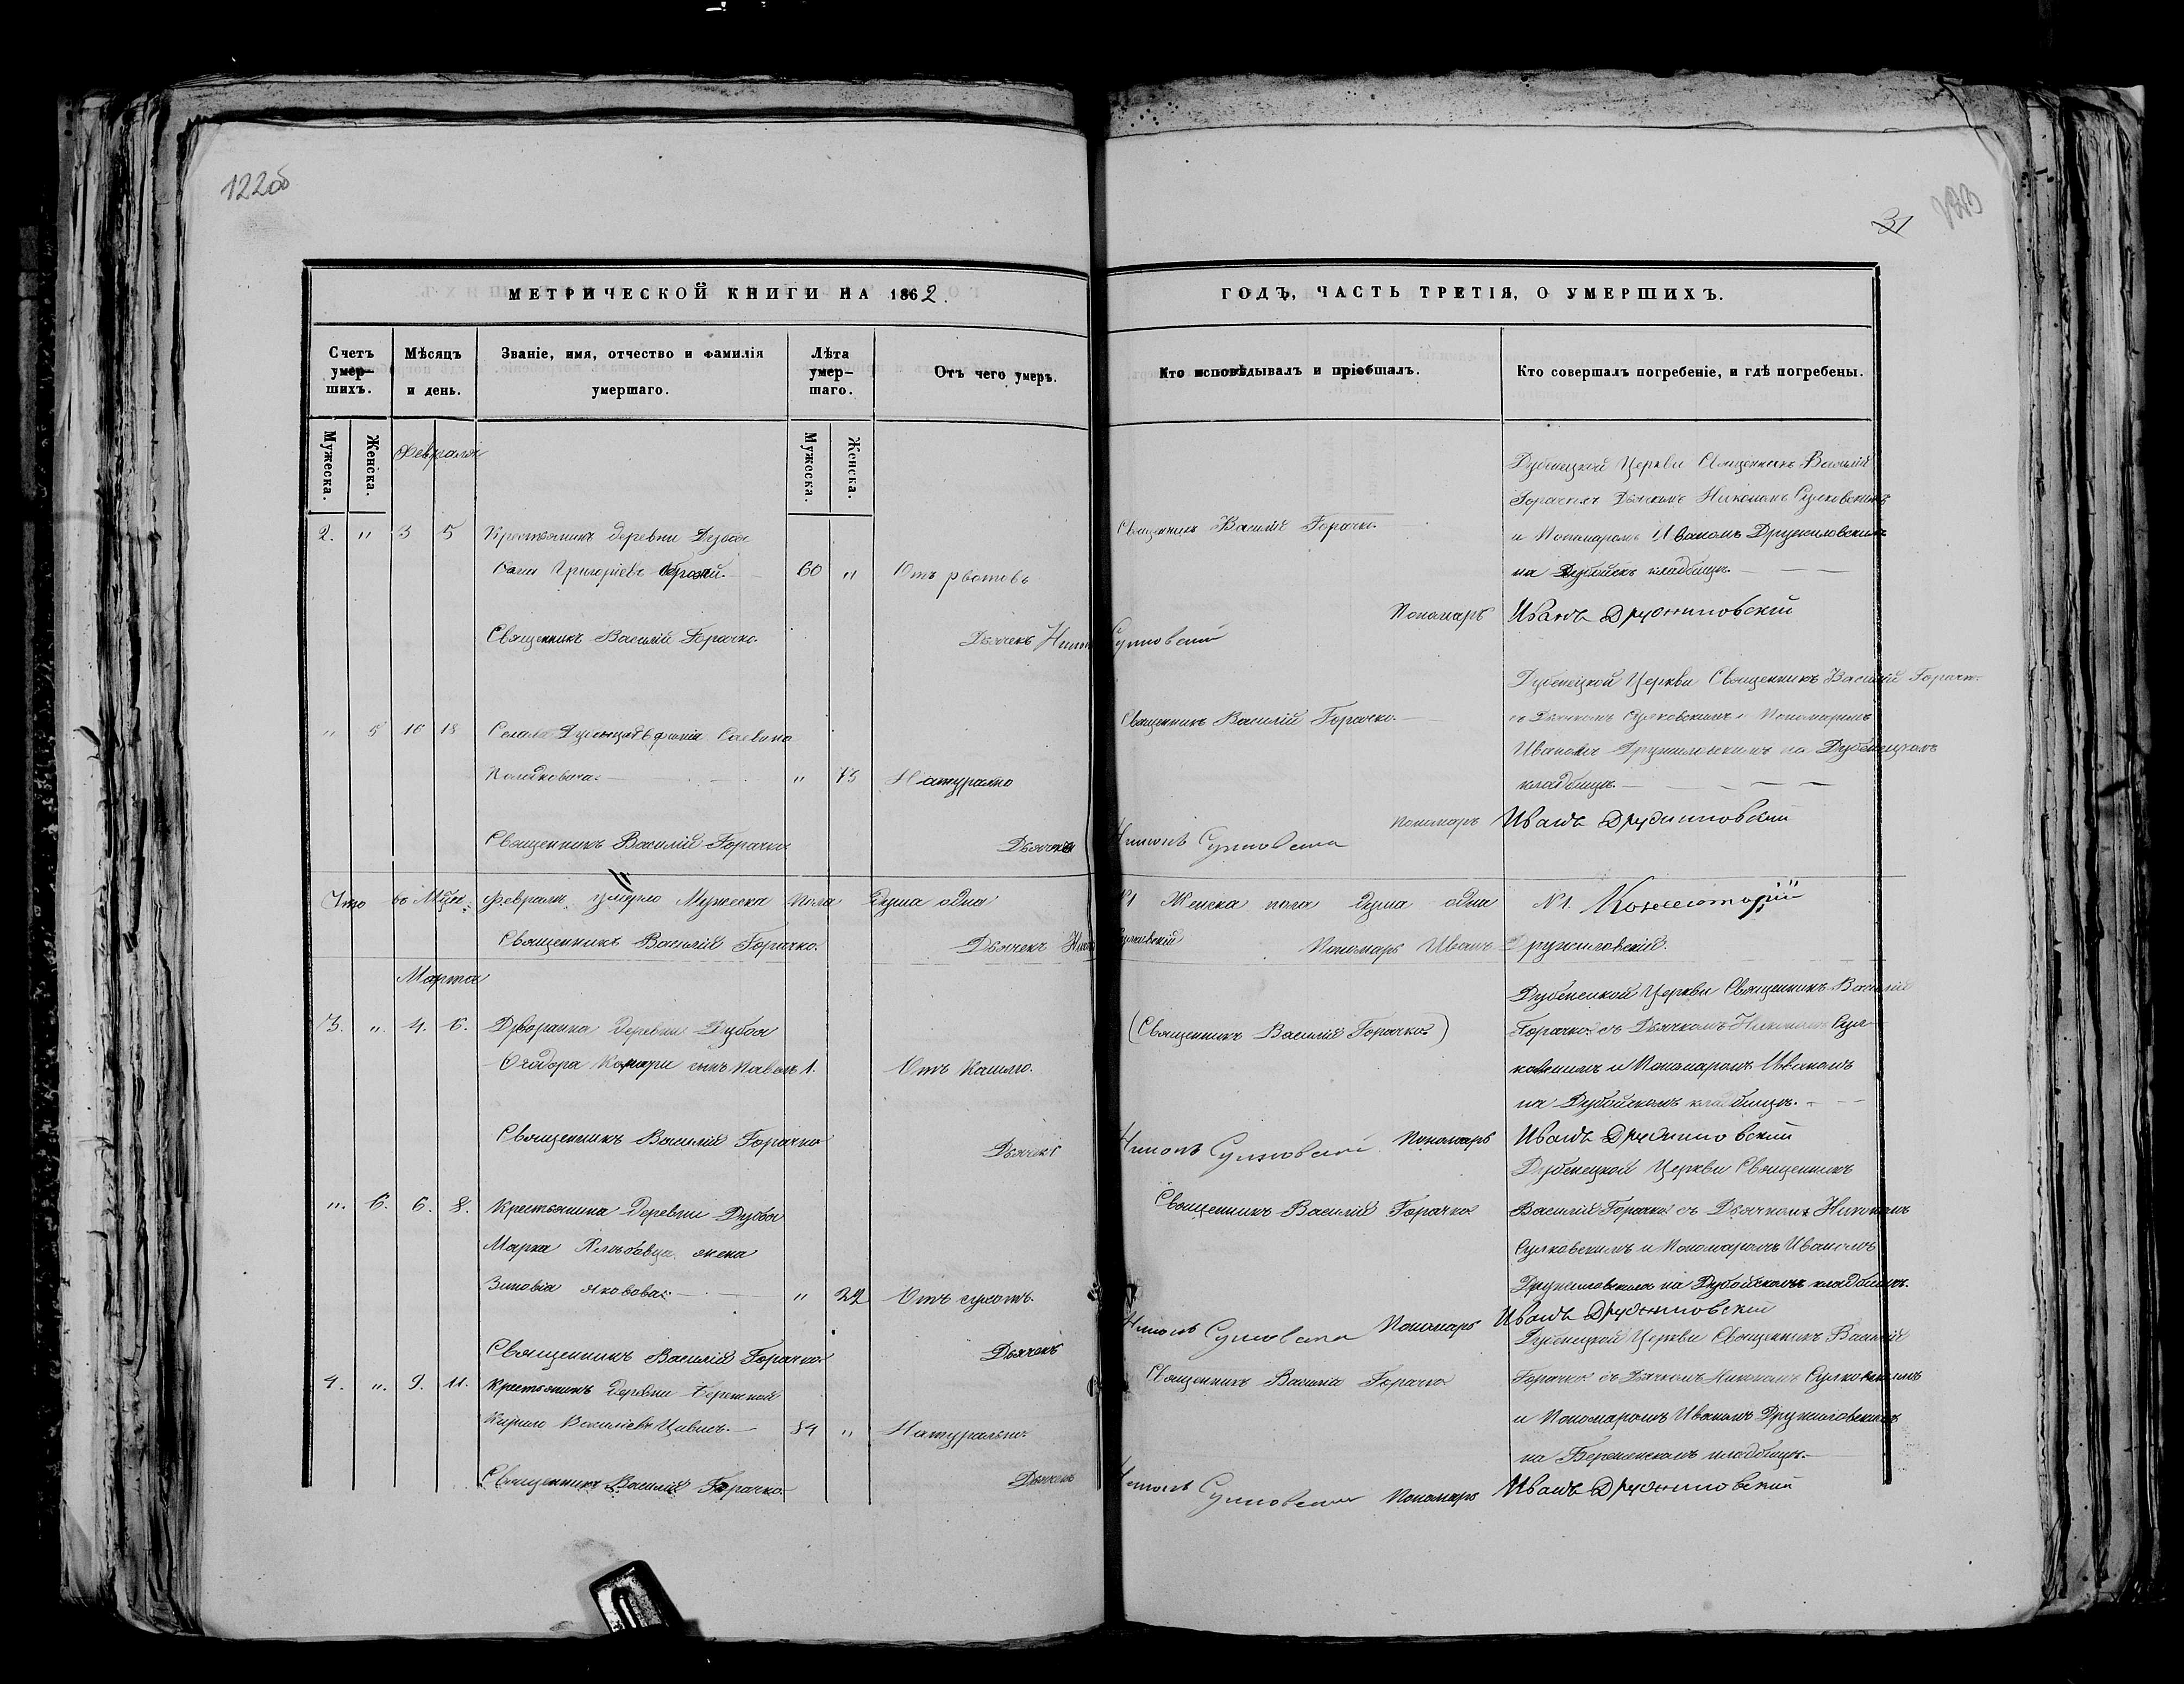 122об
31
МЕТРИЧЕСКОЙ КНИГИ НА 1862.
ГОДЪ, ЧАСТЬ ТРЕТІЯ, О УМЕРШИХЪ.
Счетъ умер-шихъ.
Мѣсяцъ и день.
Званіе, имя, отчество и фамилія умершаго.
Лѣта умер-шаго.
Отъ чего умеръ.
Кто исповѣдывалъ и пріобщалъ.
Кто совершалъ погребеніе, и гдѣ погребены.
Мужеска.
Женска.
Мужеска.
Женска.
Февраля
Дубенецкой Церкви Священникъ Василій
Горачко съ Дьячкомъ Никономъ Сулковскимъ
2. " 3 5 Крестьянинъ деревни Дубоя
Священникъ Василій Горачко.
и Пономаромъ Иваномъ Дружиловскимъ
Григоріевъ 60 " Отъ рвотовъ
на Дубойскъ кладбищѣ.
Пономарь Иванъ Дружиловскій
Священникъ Василій Горачко. Дьячекъ Никонъ Сулковскій
Дубенецкой Церкви Священникъ Василій Горачко
" 5 16 18 Савина
Священникъ Василій Горачко.
съ Дьячкомъ Сулковскимъ и Пономаромъ
Иваномъ Дружиловскимъ на Дубенецкомъ
" 73 Натурально
кладбищѣ.
Пономарь Иванъ Дружиловскій
Священникъ Василій Горачко Дьячекъ Никонъ Сулковскій
Итого во М-цѣ Февралѣ умерло Мужеска пола душа одна №1 Женска пола душа одна №1.
Священникъ Василій Горачко. Дьячекъ Никонъ Сулковскій Пономарь Иванъ Дружиловскій.
Марта
Дубенецкой Церкви Священникъ Василій
3. " 4. 6. Дворянина деревни Дубоя
(Священникъ Василій Горачко)
Горачко съ Дьячкомъ Никономъ Сул-
сынъ Павелъ 1. Отъ Кашлю.
ковскимъ и Пономаромъ Иваномъ
на Дубойскомъ кладбищѣ.
Священникъ Василій Горачко Дьячекъ Никонъ Сулковскій Пономарь Иванъ Дружиловскій
Дубенецкой Церкви Священникъ
" 6. 6. 8. Крестьянина деревни Дубоя
Священникъ Василій Горачко
Василій Горачко съ Дьячкомъ Никономъ
Марка жена
Сулковскимъ и Пономаромъ Иваномъ
Зиновія Яковова. " 22 Отъ сухотъ.
Дружиловскимъ на Дубойскомъ кладбищѣ.
Никонъ Сулковскій Пономарь Иванъ Дружиловскій
Священникъ Василій Горачко Дьячекъ
Дубенецкой Церкви Священникъ Василій
4. " 9. 11. Крестьянинъ деревни Бережной
Священникъ Василій Горачко
Горачко съ Дьячкомъ Никономъ Сулковскимъ
Кирило Василіевъ 84 " Натурально.
и Пономаромъ Иваномъ Дружиловскимъ
на кладбищѣ.
Священникъ Василій Горачко. Дьячекъ Никонъ Сулковскій Пономарь Иванъ Дружиловскій